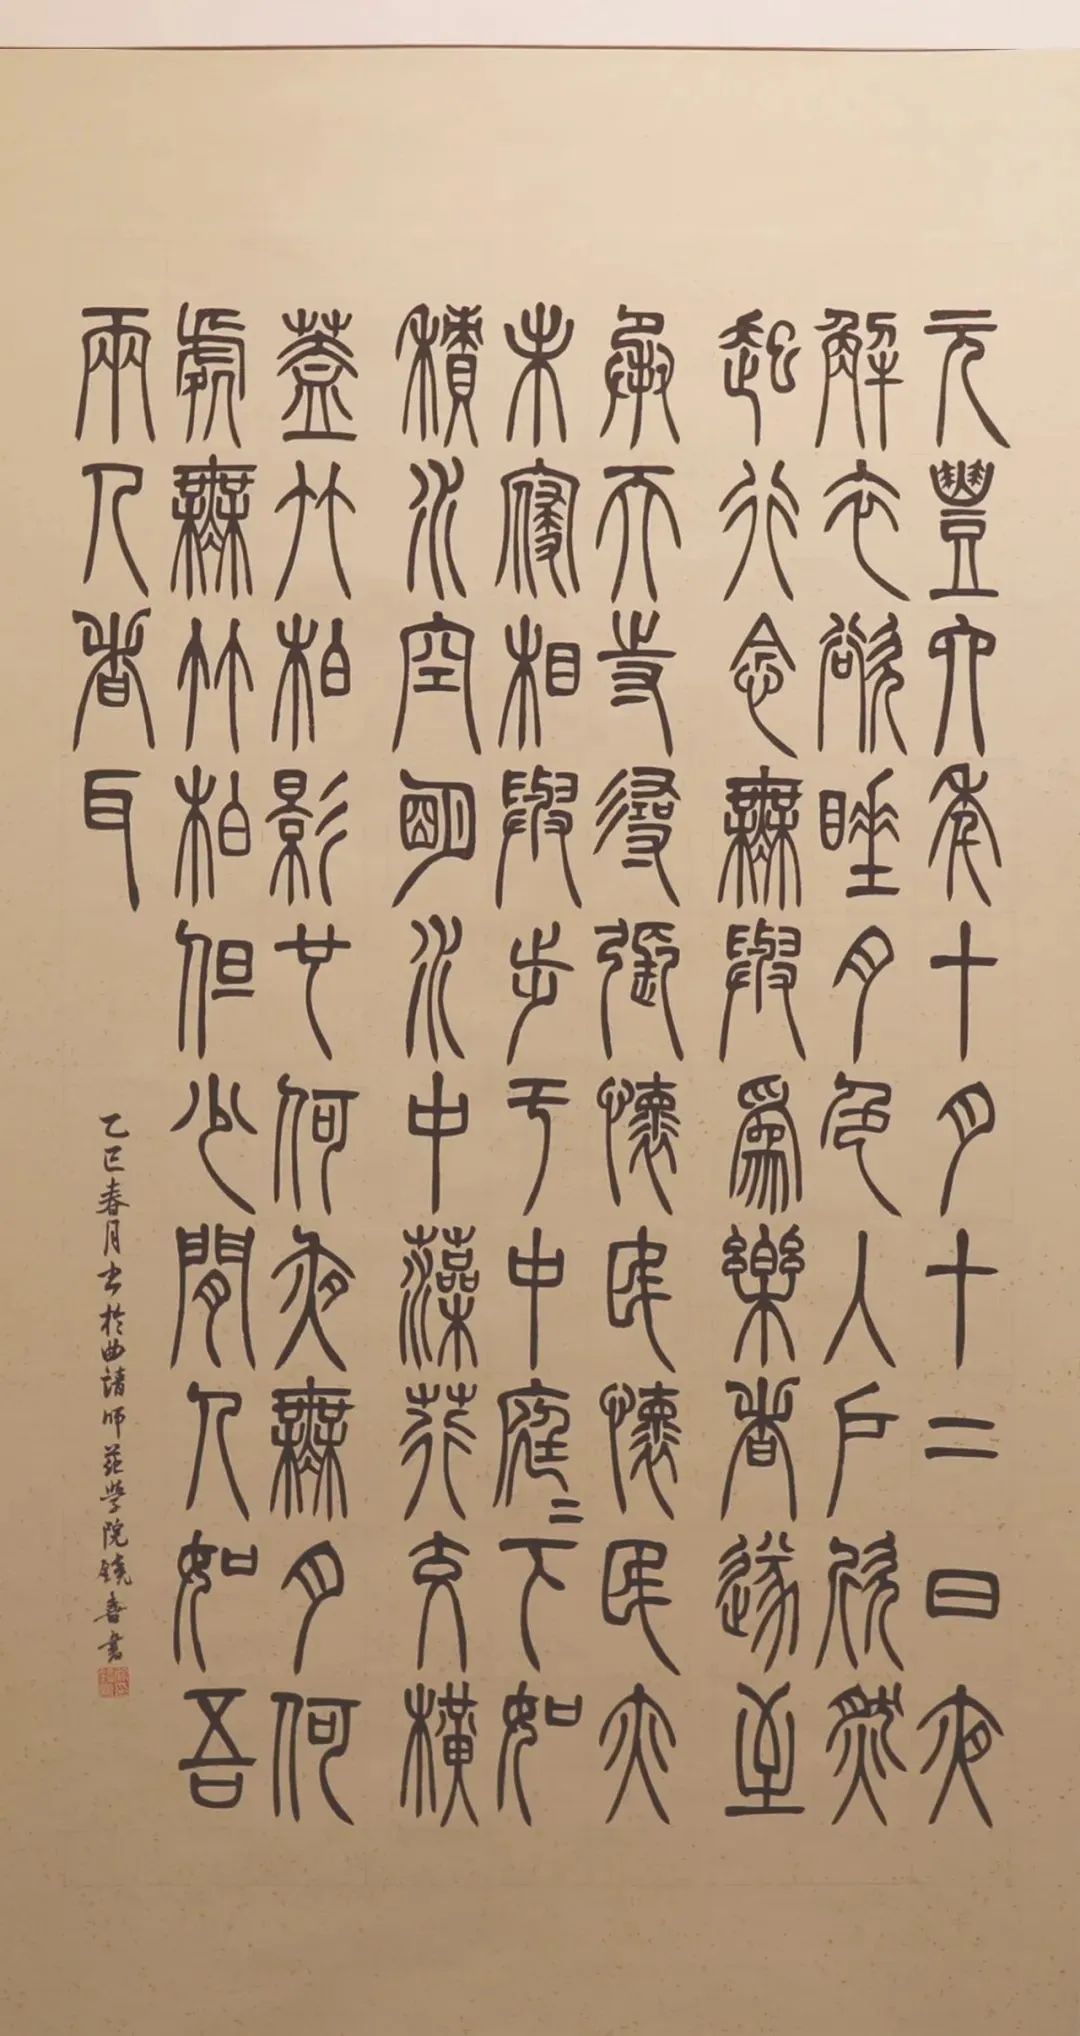 元豐六年十月十二日夜
解衣欲睡月色入戶欣然
起行念無與為樂者遂至
承天寺尋張懷民懷民亦
未寢相與步于中庭二下如
積水空明水中藻荇交橫
蓋竹柏影也何夜無月何
處無竹柏但少閒人如吾
兩人者耳
乙巳春月書於曲靖師范學院饒喜書